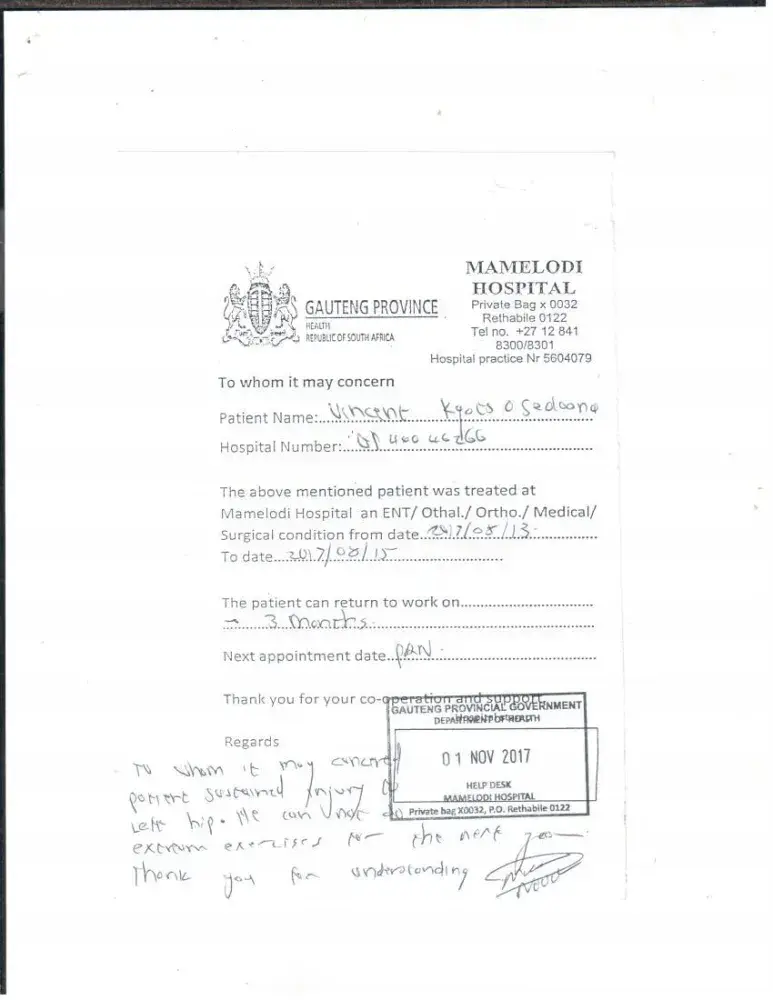 MAMELODI
HOSPITAL
Private Bag x 0032
Rethabile 0122
Tel no. +27 12 841
8300/8301
Hospital practice Nr 5604079
GAUTENG PROVINCE
HEALTH
REPUBLIC OF SOUTH AFRICA
To whom it may concern
Patient Name:.....Vincent
Hospital Number:
The above mentioned patient was treated at
Mamelodi Hospital an ENT/ Othal./ Ortho./ Medical/
Surgical condition from date..2017/08/13
To date...2017/08/15
The patient can return to work on
→ 3 Months
Next appointment date..PRN
Thank you for your co-operation and support
Regards
GAUTENG PROVINCIAL GOVERNMENT
DEPARTMENT OF HEALTH
01 NOV 2017
HELP DESK
MAMELODI HOSPITAL
Private bag X0032, P.O. Rethabile 0122
To whom it may concern
patient sustained injury
Left hip. He can not do
exercises for the next
Thank you for understanding